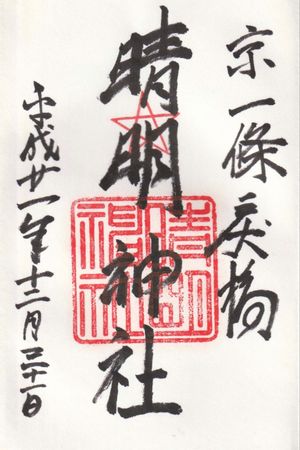 京一條戻橋
晴明神社
平成廿一年十二月三十一日
晴明神社